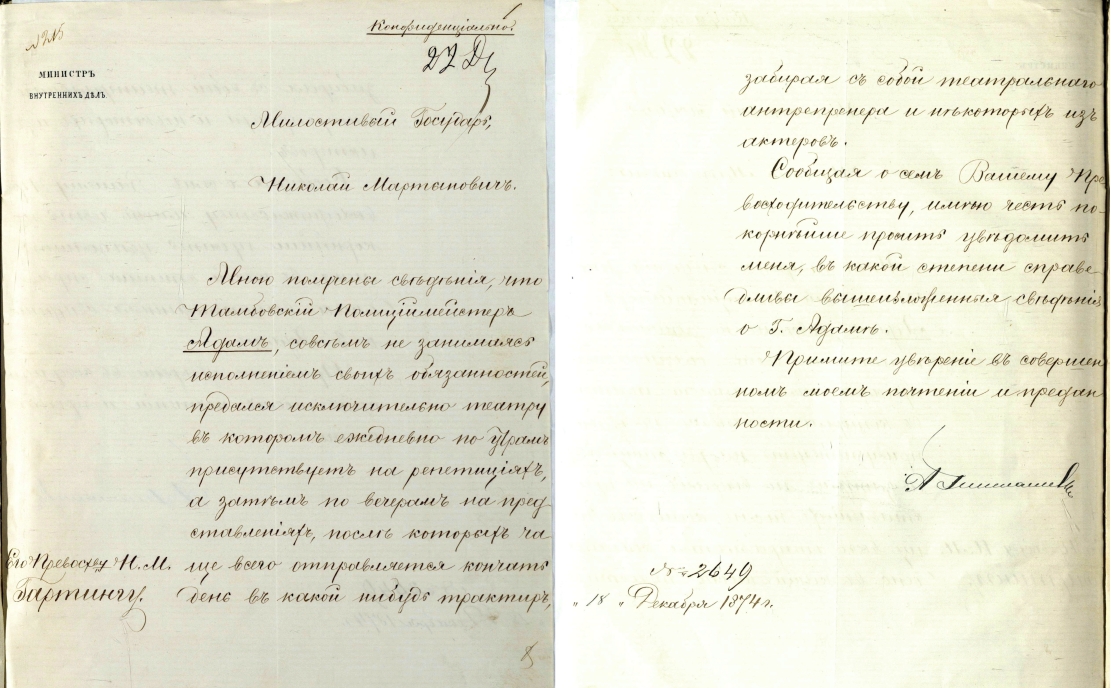 Конфиденціально.
22 Д
МИНИСТРЪ
ВНУТРЕННИХЪ ДѢЛЪ.
Милостивый Государь,
Николай Мартыновичъ.
Мною получены свѣдѣнія, что
Тамбовскій Полиціймейстеръ
Адамъ, совсѣмъ не занимаясь
исполненіемъ своихъ обязанностей,
предался исключительно театру
въ которомъ ежедневно по утрамъ
присутствуетъ на репетиціяхъ,
а затѣмъ по вечерамъ на пред
ставленіяхъ, послѣ которыхъ ча
ще всего отправляется кончать
день въ какой нибудь трактиръ,
Его Превосх-ву Н. М.
Гартингу.
забирая съ собой театральнаго
антрепренера и нѣкоторыхъ изъ
актеровъ.
Сообщая о семъ Вашему Пре
восходительству, имѣю честь по-
корнѣйше просить увѣдомить
меня, въ какой степени справе
дливы вышеизложенныя свѣдѣнія
о Г. Адамѣ.
Примите увѣреніе въ совершен
номъ моемъ почтеніи и предан
ности.
А Тимашевъ
№ 2649
"18" Декабря 1874 г.